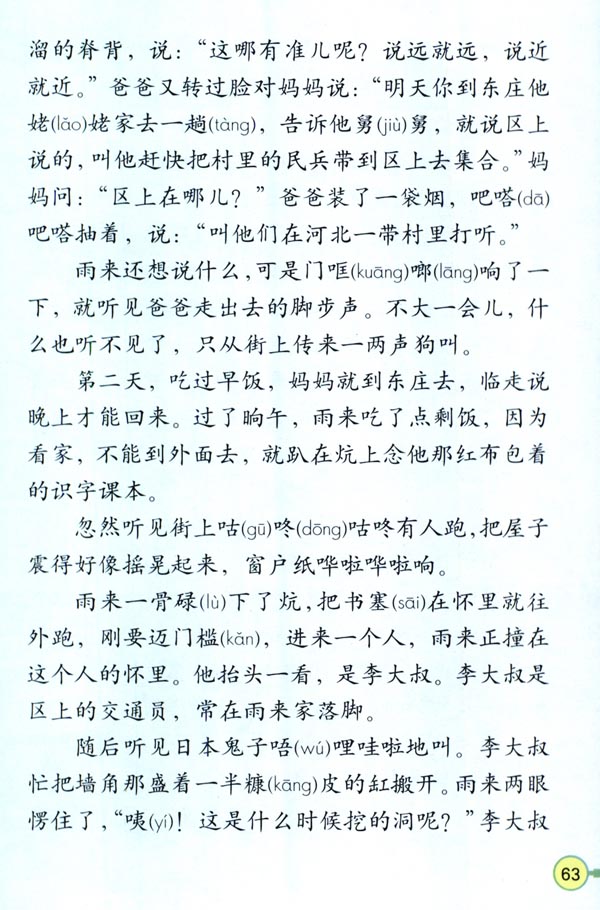 溜的脊背，说：“这哪有准儿呢？说远就远，说近
就近。”爸爸又转过脸对妈妈说：“明天你到东庄他
姥(lǎo)姥家去一趟(tàng)，告诉他舅(jiù)舅，就说区上
说的，叫他赶快把村里的民兵带到区上去集合。”妈
妈问：“区上在哪儿？”爸爸装了一袋烟，吧嗒(dā)
吧嗒抽着，说：“叫他们在河北一带村里打听。”
雨来还想说什么，可是门哐(kuāng)啷(lāng)响了一
下，就听见爸爸走出去的脚步声。不大一会儿，什
么也听不见了，只从街上传来一两声狗叫。
第二天，吃过早饭，妈妈就到东庄去，临走说
晚上才能回来。过了晌午，雨来吃了点剩饭，因为
看家，不能到外面去，就趴在炕上念他那红布包着
的识字课本。
忽然听见街上咕(gū)咚(dōng)咕咚有人跑，把屋子
震得好像摇晃起来，窗户纸哗啦哗啦响。
雨来一骨碌(lù)下了炕，把书塞(sāi)在怀里就往
外跑，刚要迈门槛(kǎn)，进来一个人，雨来正撞在
这个人的怀里。他抬头一看，是李大叔。李大叔是
区上的交通员，常在雨来家落脚。
随后听见日本鬼子唔(wú)哩哇啦地叫。李大叔
忙把墙角那盛着一半糠(kāng)皮的缸搬开。雨来两眼
愣住了，“咦(yí)！这是什么时候挖的洞呢？”李大叔
63